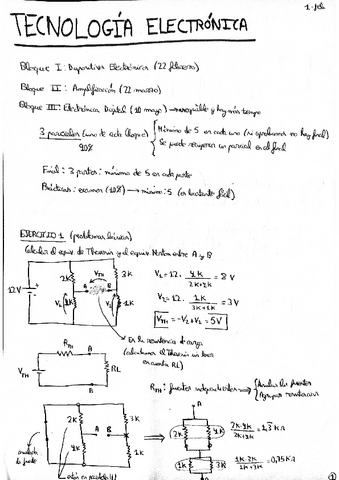 1-feb
TECNOLOGÍA ELECTRÓNICA
Bloque I: Dispositivos Electrónicos (22 febrero)
Bloque II: Amplificación (22 marzo)
Bloque III: Electrónica Digital (10 mayo) → asequible y hay más tiempo
3 parciales (uno de cada bloque) { Mínimo de 5 en cada uno (si aprobamos no hay final)
90% Se puede recuperar un parcial en el final
Final: 3 partes: mínimo de 5 en cada parte
Prácticas: examen (10%) → mínimo: 5 (es bastante fácil)
EJERCICIO 1 (problemas básicos)
Calcular el equiv. de Thevenin y el equiv. Norton entre A y B
12V
2K
3K
VTH
A
B
V1
4K
V2
1K
V1 = 12 · 4K / 2K+4K = 8V
V2 = 12 · 1K / 3K+1K = 3V
VTH = -V2 + V1 = 5V
Es la resistencia de carga
(calculamos el Thevenin sin tener
en cuenta RL)
RTH
A
VTH
RL
B
RTH: fuentes independientes → { Anular las fuentes
Agrupar resistencias
2K
3K
A
B
4K
1K
A
2K
4K
2K·4K / 2K+4K = 1,3 KΩ
3K
1K
1K·3K / 1K+3K = 0,75 KΩ
B
1